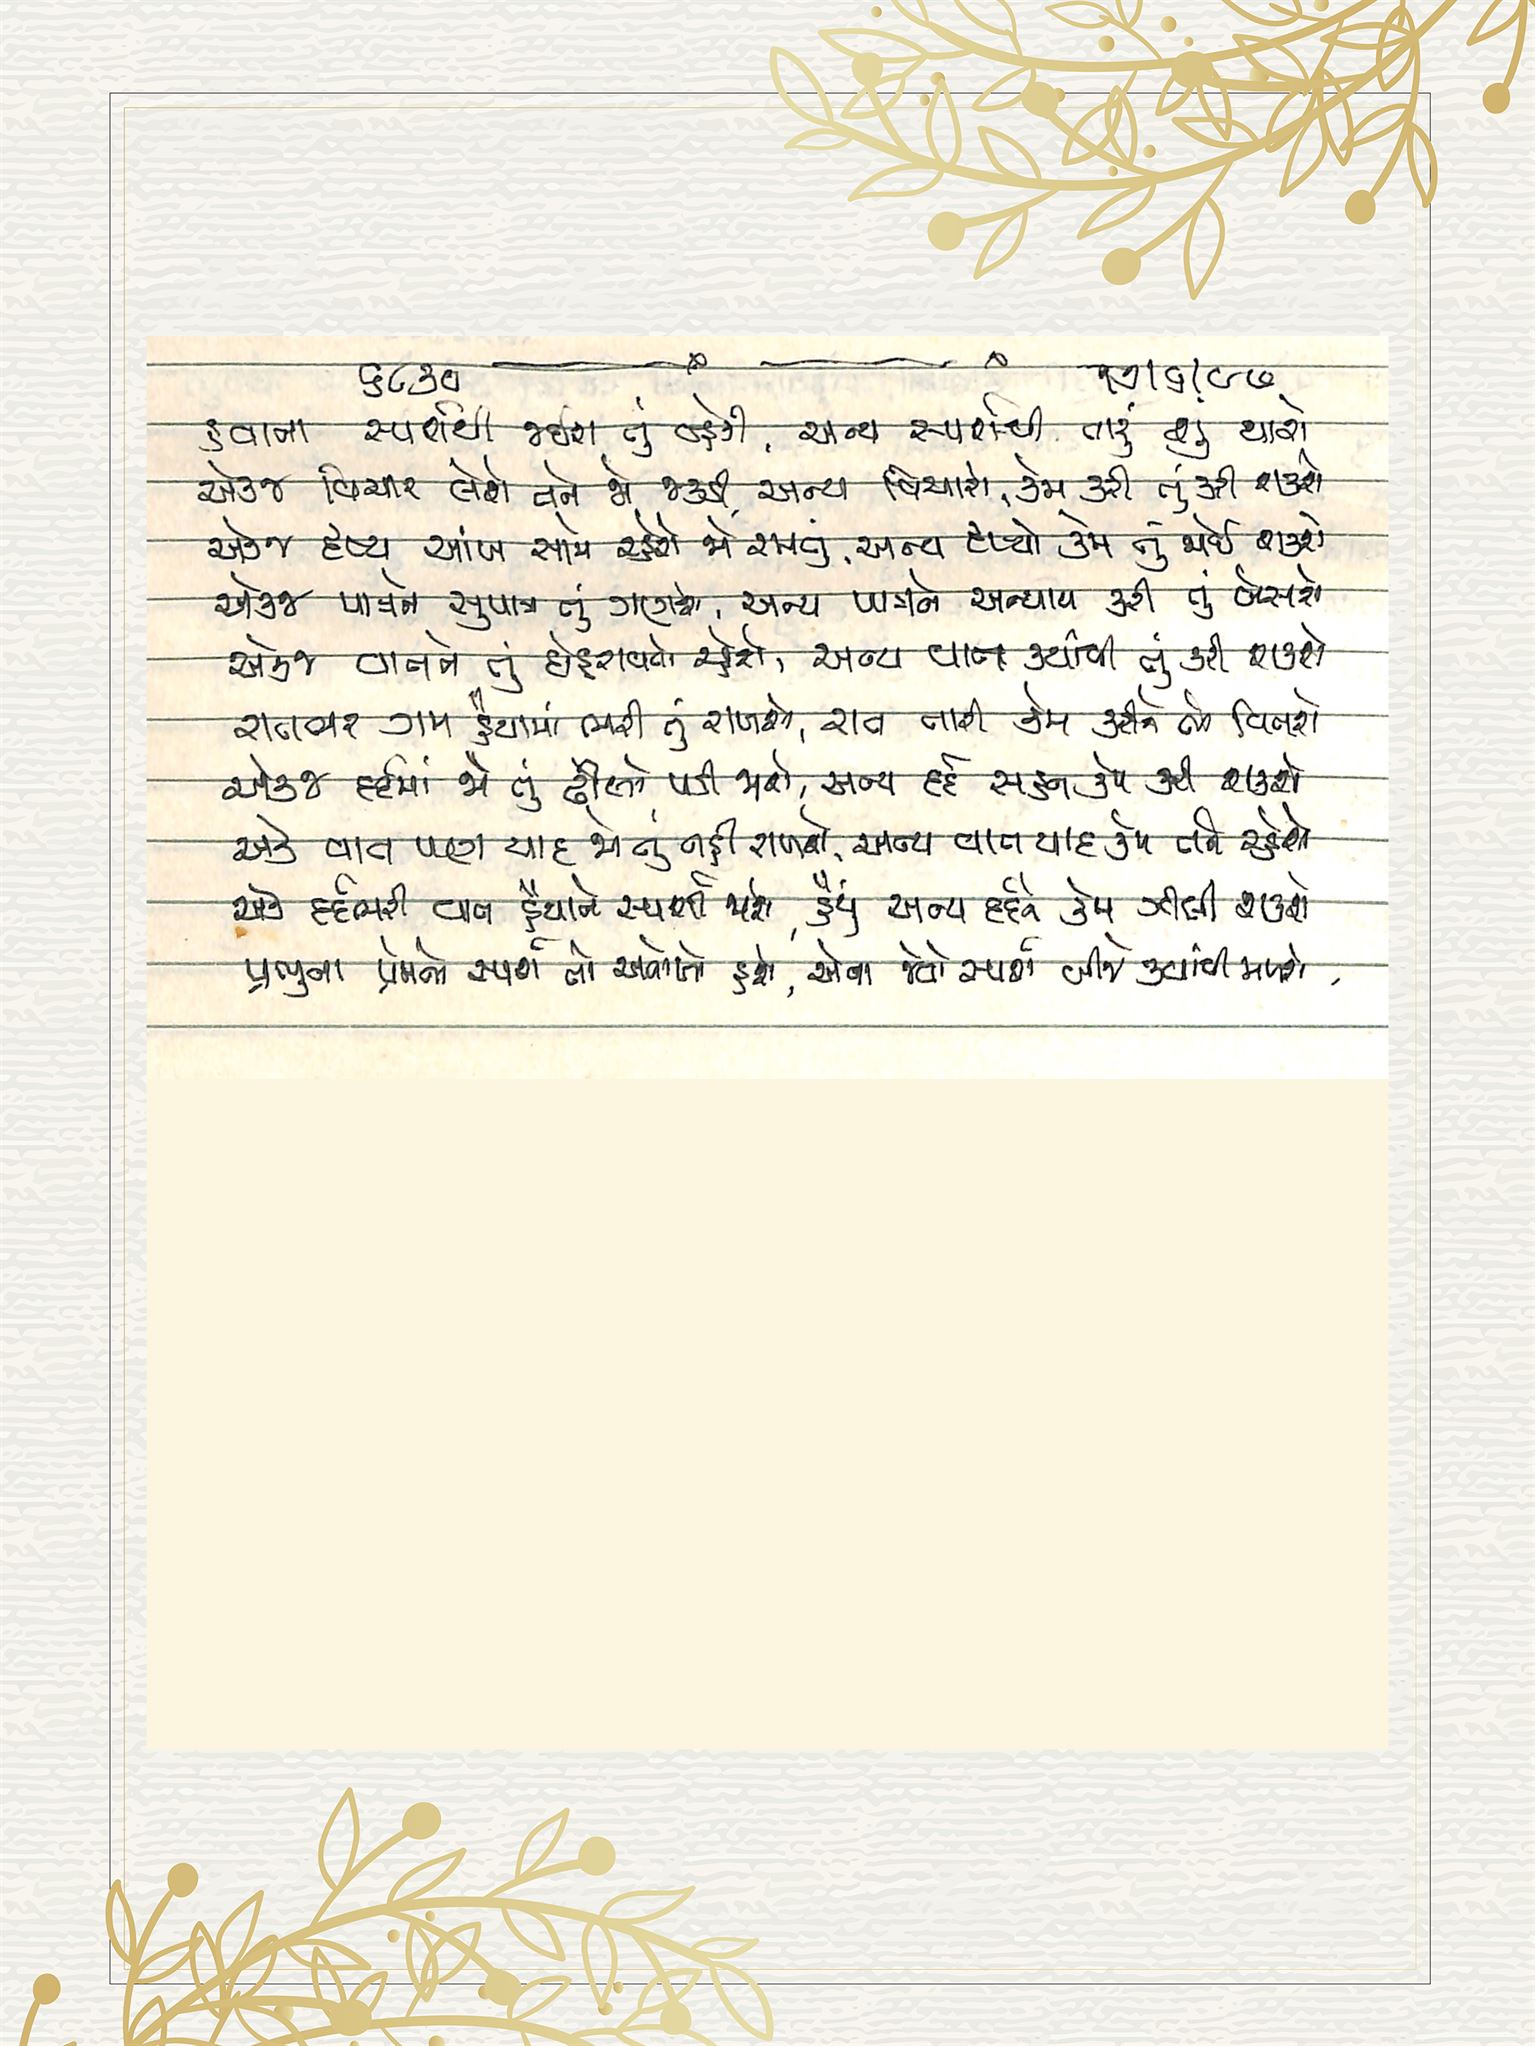 ૬૮૩૦ ૨૭/૬/૮૭
હવાના સ્પર્શથી જાઈશ તું બહેકી, અન્ય સ્પર્શથી તારું શું થાશે
એકજ વિચાર લેશે તને જો જકડી, અન્ય વિચારો કેમ કરી તું કરી શકશે
એકજ દૃષ્ય આંખ સામે રહેશે જો રમતું, અન્ય દૃષ્યો કેમ તું જોઈ શકશે
એકજ પાત્રને સુપાત્ર તું ગણશે, અન્ય પાત્રને અન્યાય કરી તું બેસશે
એકજ વાતને તું દોહરાવતો રહેશે, અન્ય વાત ક્યાંથી તું કરી શકશે
રાતભર ગમ હૈયામાં ભરી તું રાખશે, રાત તારી કેમ કરીને તો વિતશે
એકજ દર્દમાં જો તું ઢીલો પડી જાશે, અન્ય દર્દ સહન કેમ કરી શકશે
એકે વાત પણ યાદ જો તું નહી રાખશે, અન્ય વાત યાદ કેમ તને રહેશે
એકે દર્દભરી વાત હૈયાને સ્પર્શી જાશે, હૈયું અન્ય દર્દને કેમ ઝીલી શકશે
પ્રભુના પ્રેમનો સ્પર્શ તો અનોખો હશે, એના જેવો સ્પર્શ બીજે ક્યાંથી મળશે.